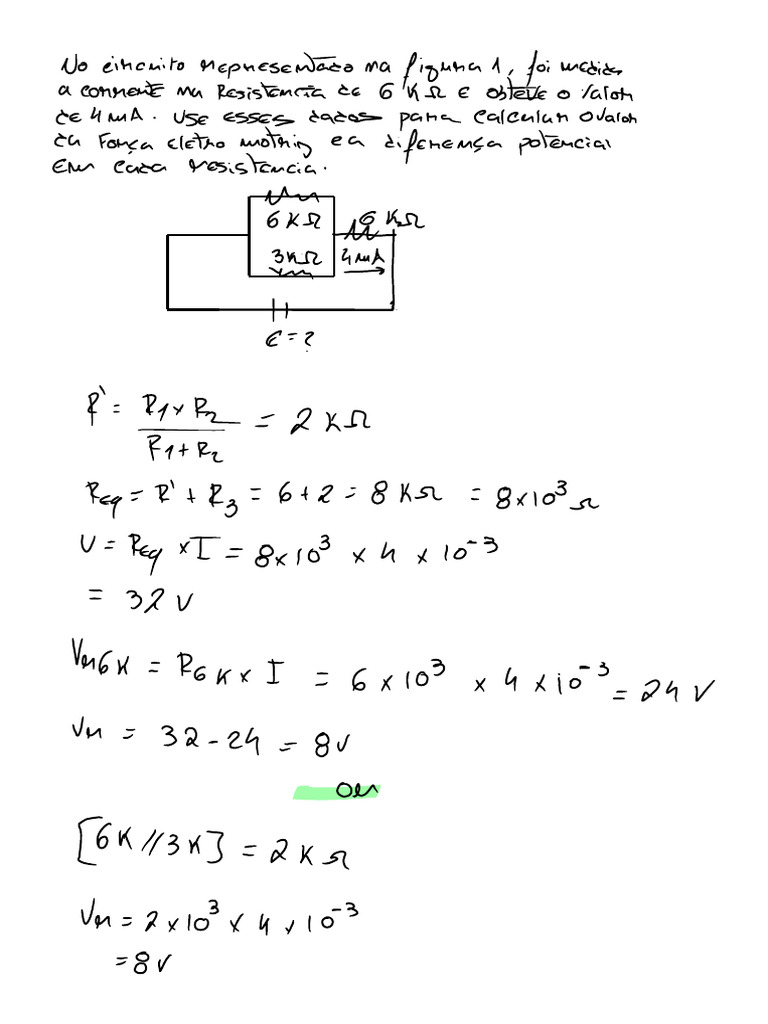 No circuito representado na figura 1, foi medida
a corrente na Resistencia de 6 KΩ e obteve o valor
de 4mA. Use esses dados para calcular o valor
da Força eletro motriz e a diferença potencial
em cada resistencia.
6 KΩ 6 KΩ
3KΩ 4mA
ε = ?
R' = R1 x R2 / R1 + R2 = 2 KΩ
Req = R' + R3 = 6 + 2 = 8 KΩ = 8x10³ Ω
U = Req x I = 8x10³ x 4 x 10⁻³
= 32 V
Vr6K = R6K x I = 6 x 10³ x 4 x 10⁻³ = 24 V
Vr = 32 - 24 = 8v
ou
[6K // 3K] = 2 K Ω
Vr = 2 x 10³ x 4 x 10⁻³
= 8 V